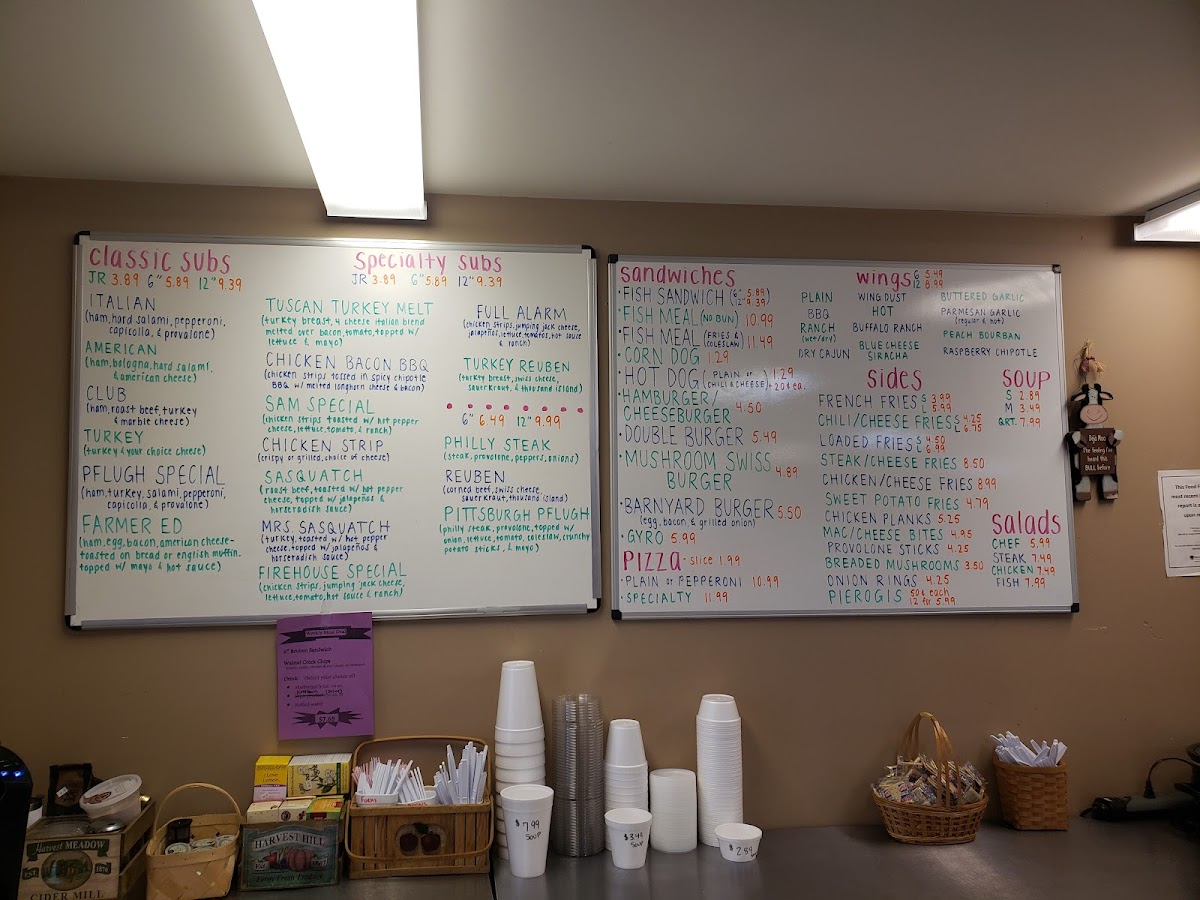 classic subs
JR 3.89 6" 5.89 12" 9.39
ITALIAN
(ham, hard salami, pepperoni,
capicolla, & provalone)
AMERICAN
(ham, bologna, hard salami,
& american cheese)
CLUB
(ham, roast beef, turkey
& marble cheese)
TURKEY
(turkey & your choice cheese)
PFLUGH SPECIAL
(ham, turkey, salami, pepperoni,
capicolla, & provalone)
FARMER ED
(ham, egg, bacon, american cheese-
toasted on bread or english muffin.
topped w/ mayo & hot sauce)
Specialty subs
JR 3.89 6" 5.89 12" 9.39
TUSCAN TURKEY MELT
(turkey breast, 4 cheese italian blend
melted over bacon, tomato, topped w/
lettuce & mayo)
CHICKEN BACON BBQ
(chicken strips tossed in spicy chipotle
BBQ w/ melted longhorn cheese & bacon)
SAM SPECIAL
(chicken strips toasted w/ hot pepper
cheese, lettuce, tomato, & ranch)
CHICKEN STRIP
(crispy or grilled, choice of cheese)
SASQUATCH
(roast beef, toasted w/ hot pepper
cheese, topped w/ jalapeños &
horseradish sauce)
MRS. SASQUATCH
(turkey, toasted w/ hot pepper
cheese, topped w/ jalapeños &
horseradish sauce)
FIREHOUSE SPECIAL
(chicken strips, jumping jack cheese,
lettuce, tomato, hot sauce & ranch)
FULL ALARM
(chicken strips, jumping jack cheese,
jalapeños, lettuce, tomatoes, hot sauce
& ranch)
TURKEY REUBEN
(turkey breast, swiss cheese,
sauerkraut, & thousand island)
6" 6.49 12" 9.99
PHILLY STEAK
(steak, provalone, peppers, onions)
REUBEN
(corned beef, swiss cheese,
sauerkraut, thousand island)
PITTSBURGH PFLUGH
(philly steak, provalone, topped w/
onion, lettuce, tomato, coleslaw, crunchy
potato sticks, & mayo)
sandwiches
• FISH SANDWICH (6" 5.89
12" 9.39)
• FISH MEAL (NO BUN) 10.99
• FISH MEAL (FRIES &
COLESLAW) 11.49
• CORN DOG 1.29
• HOT DOG (PLAIN or) 1.29
(CHILI & CHEESE) +20¢ ea.
• HAMBURGER/
CHEESEBURGER 4.50
• DOUBLE BURGER 5.49
• MUSHROOM SWISS
BURGER 4.89
• BARNYARD BURGER 5.50
(egg, bacon, & grilled onion)
• GYRO 5.99
PIZZA - slice 1.99
• PLAIN or PEPPERONI 10.99
• SPECIALTY 11.99
wings 6 5.49
12 8.99
PLAIN
BBQ
RANCH
(wet/dry)
DRY CAJUN
WING DUST
HOT
BUFFALO RANCH
BLUE CHEESE
SIRACHA
BUTTERED GARLIC
PARMESAN GARLIC
(regular & hot)
PEACH BOURBAN
RASPBERRY CHIPOTLE
sides
FRENCH FRIES S 3.99
L 5.99
CHILI/CHEESE FRIES S 4.25
L 6.75
LOADED FRIES S 4.50
L 6.99
STEAK/CHEESE FRIES 8.50
CHICKEN/CHEESE FRIES 8.99
SWEET POTATO FRIES 4.79
CHICKEN PLANKS 5.25
MAC/CHEESE BITES 4.95
PROVALONE STICKS 4.25
BREADED MUSHROOMS 3.50
ONION RINGS 4.25
PIEROGIS 50¢ each
12 for 5.99
SOUP
S 2.89
M 3.49
QRT. 7.99
Salads
CHEF 5.99
STEAK 7.49
CHICKEN 7.49
FISH 7.99
Deja Moo
The feeling I've
heard this
BULL before
This Food F
most recen
report is a
upon re
6" Reuben Sandwich
Walnut Creek Chips
$7.65
$7.99
SOUP
$3.49
SOUP
2.89
I Love
Lemon
Harvest MEADOW
EST. 1876
CIDER MILL
HARVEST HILL
Farm Fresh Produce